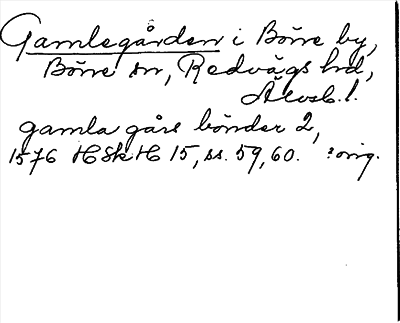 Gamlegården i Böne by,
Böne sn, Redvägs hd,
Älvsb. l.
gamla gårs bönder 2,
1576 HSkH 15, ss. 59, 60. : orig.